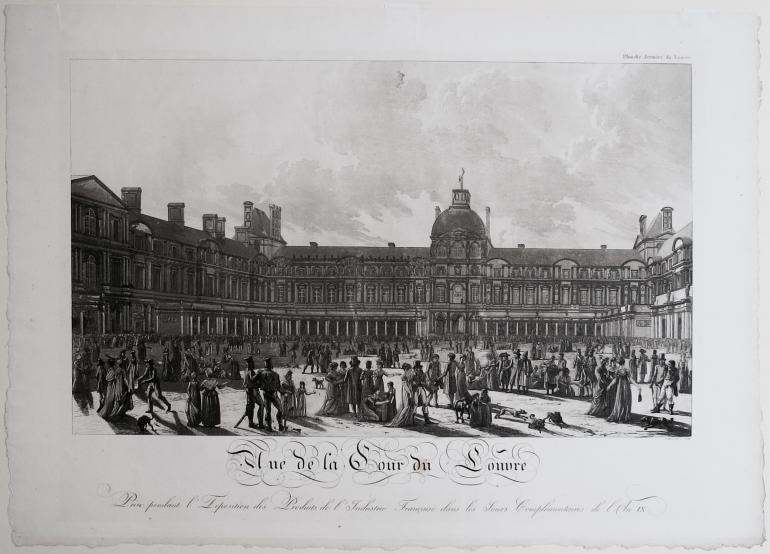 Planche dernière du Louvre
Vue de la Cour du Louvre
Prise pendant l'Exposition des Produits de l'Industrie Française dans les Jours Complémentaires de l'An IX.